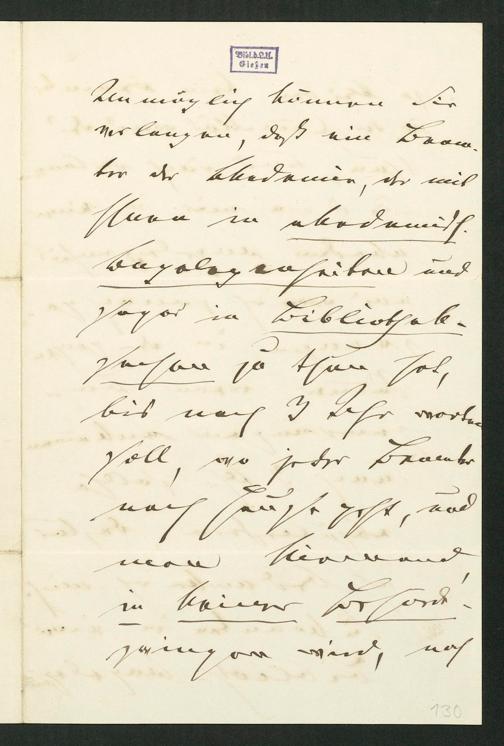 Bibl.d.U.
Gießen
Unmöglich können Sie
verlangen, daß ein Beam-
ter der Akademie, der mit
Ihnen in akademisch.
Angelegenheiten und
sogar in Bibliothek-
sachen zu thun hat,
bis nach 3 Uhr warten
soll, wo jeder Beamte
nach Hause geht, und
man Niemand,
in keiner Behörde
zwingen wird, nach
130